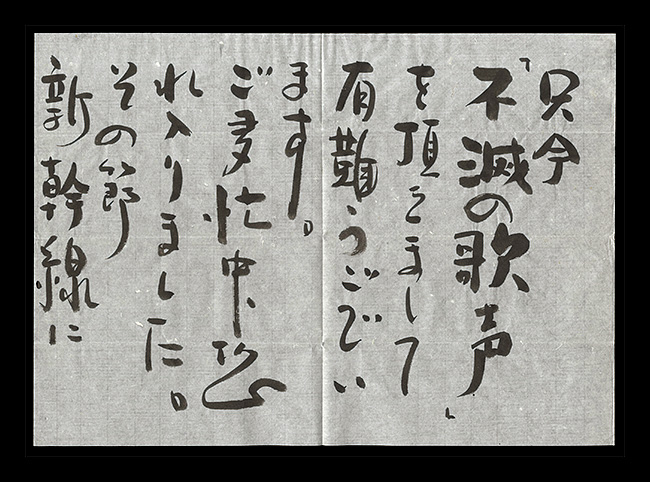 只今
「不滅の歌声」
を頂きまして
有難うございい
ます。
ご多忙中、恐
れ入りました。
その節
新幹線に